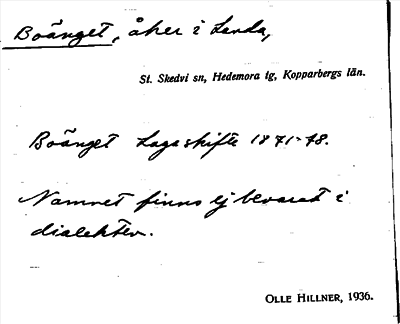 Boänget, åker i Landa,
St. Skedvi sn, Hedemora tg, Kopparbergs län.
Boänget Laga skifte 1871-78.
Namnet finns ej bevarat i
dialekten.
OLLE HILLNER, 1936.